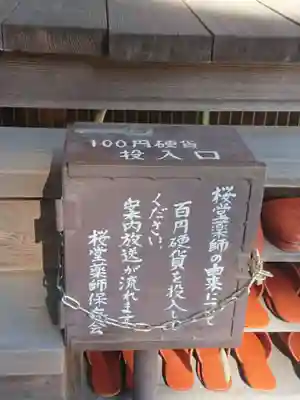 100円硬貨
投入口
桜堂薬師の由来について
百円硬貨を投入して
ください。
案内放送が流れます
桜堂薬師保存会